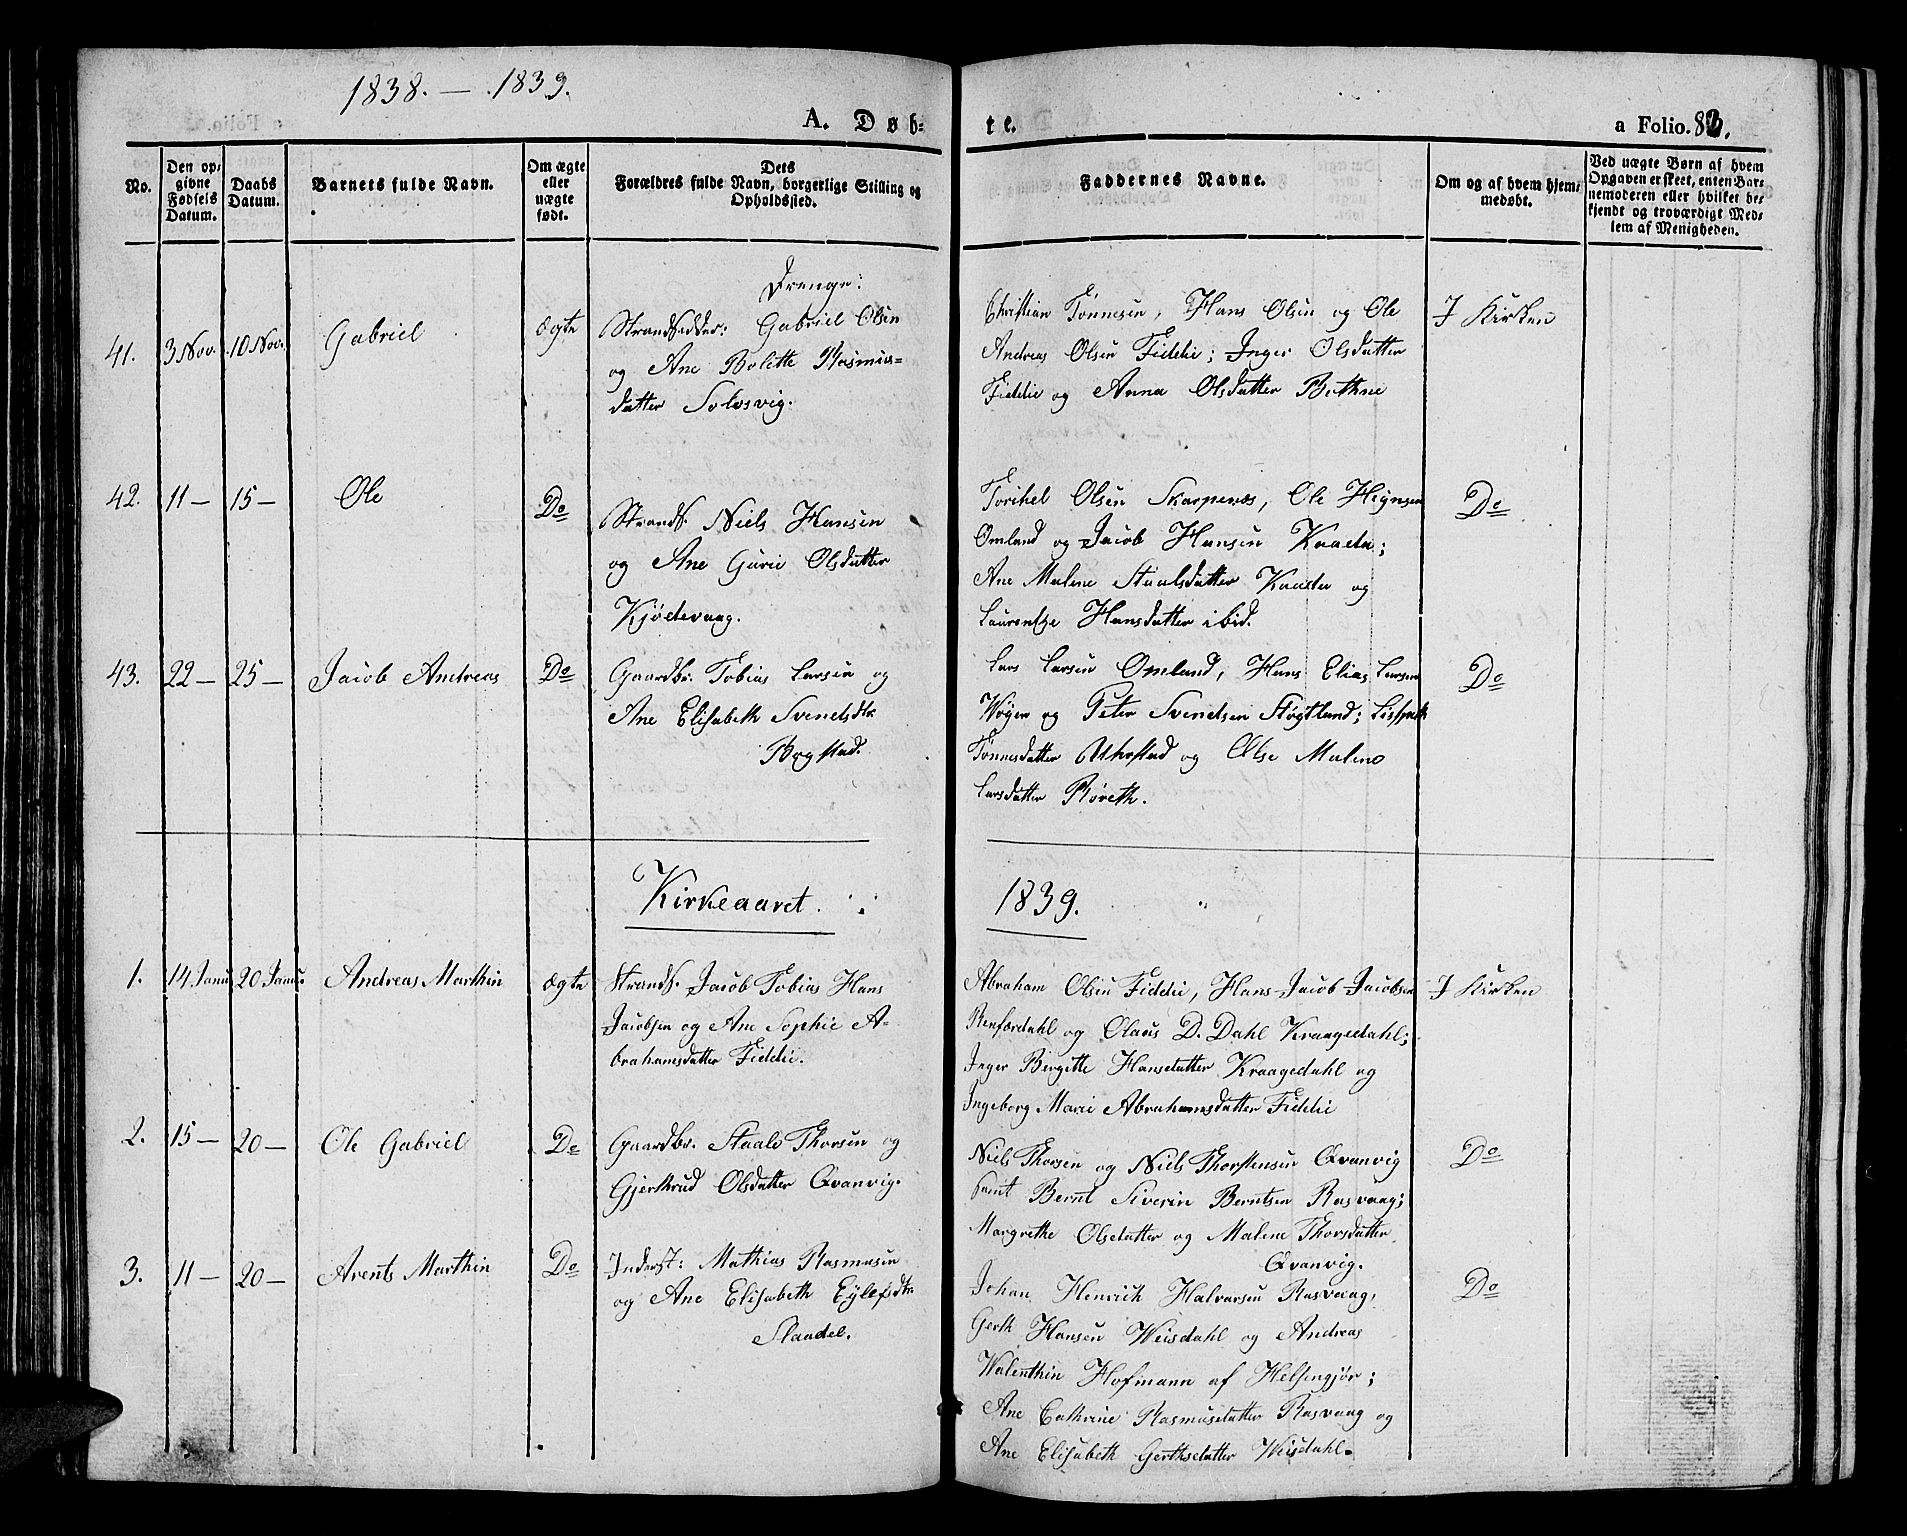 1838. — 1839.
A. Døb-
te.
a Folio. 83.
No.
Den op-
givne
Fødsels
Datum.
Daabs
Datum.
Barnets fulde Navn.
Om ægte
eller
uægte
født.
Dets
Forældres fulde Navn, borgerlige Stilling og
Opholdssted.
Faddernes Navne.
Om og af hvem hjem-
medøbt.
Ved uægte Børn af hvem
Opgaven er skeet, enten Bar-
nemoderen eller hvilket be-
kjendt og troværdigt Med-
lem af Menigheden.
Drenge:
41. 3 Nov. 10 Nov. Gabriel ægte
Strandsidder: Gabriel Olsen
og Ane Bolette Rasmus-
datter Solosvig.
Christian Tønnesen, Hans Olsen og Ole
Andreas Olsen Fidde; Inger Olsdatter
Fidde og Anna Olsdatter Bothne
I Kirken
42. 11 — 15 — Ole Do
Strands. Niels Hansen
og Ane Gurie Olsdatter
Kjødevaag.
Torikel Olsen Skarpenæs, Ole
Omland og Jacob Hansen Kaade;
Ane Malene Staalsdatter Kaade og
Laurentze Hansdatter ibid.
Do
43. 22 — 25 — Jacob Andreas Do
Gaardbr. Tobias Larsen og
Ane Elisabeth Svendsdtr
Bogstad.
Lars Larsen Omland, Hans Elias Larsen
Røgen og Peter Svendsen Støgtland; Lisspeth
Tønnesdatter Askestad og Else Malene
Larsdatter Røreth.
Do
Kirkeaaret
1839.
1. 14 Janu. 20 Janu. Andreas Marthin ægte
Strands. Jacob Tobias Hans
Jacobsen og Ane Sophie A-
brahamsdatter Fidde.
Abraham Olsen Fidde, Hans Jacob Jacobsen
Renfærdahl og Olaus D. Dahl Kraagedahl;
Inger Bergitte Hansdatter Kraagedahl og
Ingeborg Marie Abrahamsdatter Fidde
I Kirken
2. 15 — 20 — Ole Gabriel Do
Gaardbr. Staale Thorsen og
Gjertrud Olsdatter Qvanvig.
Niels Thorsen og Niels Thorstensen Qvanvig
samt Bernt Siverin Berntsen Rasvaag;
Margrethe Olsdatter og Malene Thorsdatter
Qvanvig.
Do
3. 11 — 20 — Arents Marthin Do
Inderst: Mathias Rasmusen
og Ane Elisabeth Eylefsdtr
Staadel.
Johan Henrich Halvarsen Rasvaag,
Gerth Hansen Weisdahl og Andreas
Walenthin Hofmann af Helsingjør;
Ane Cathrine Rasmusdatter Rasvaag og
Ane Elisabeth Gerthsdatter Weisdahl.
Do